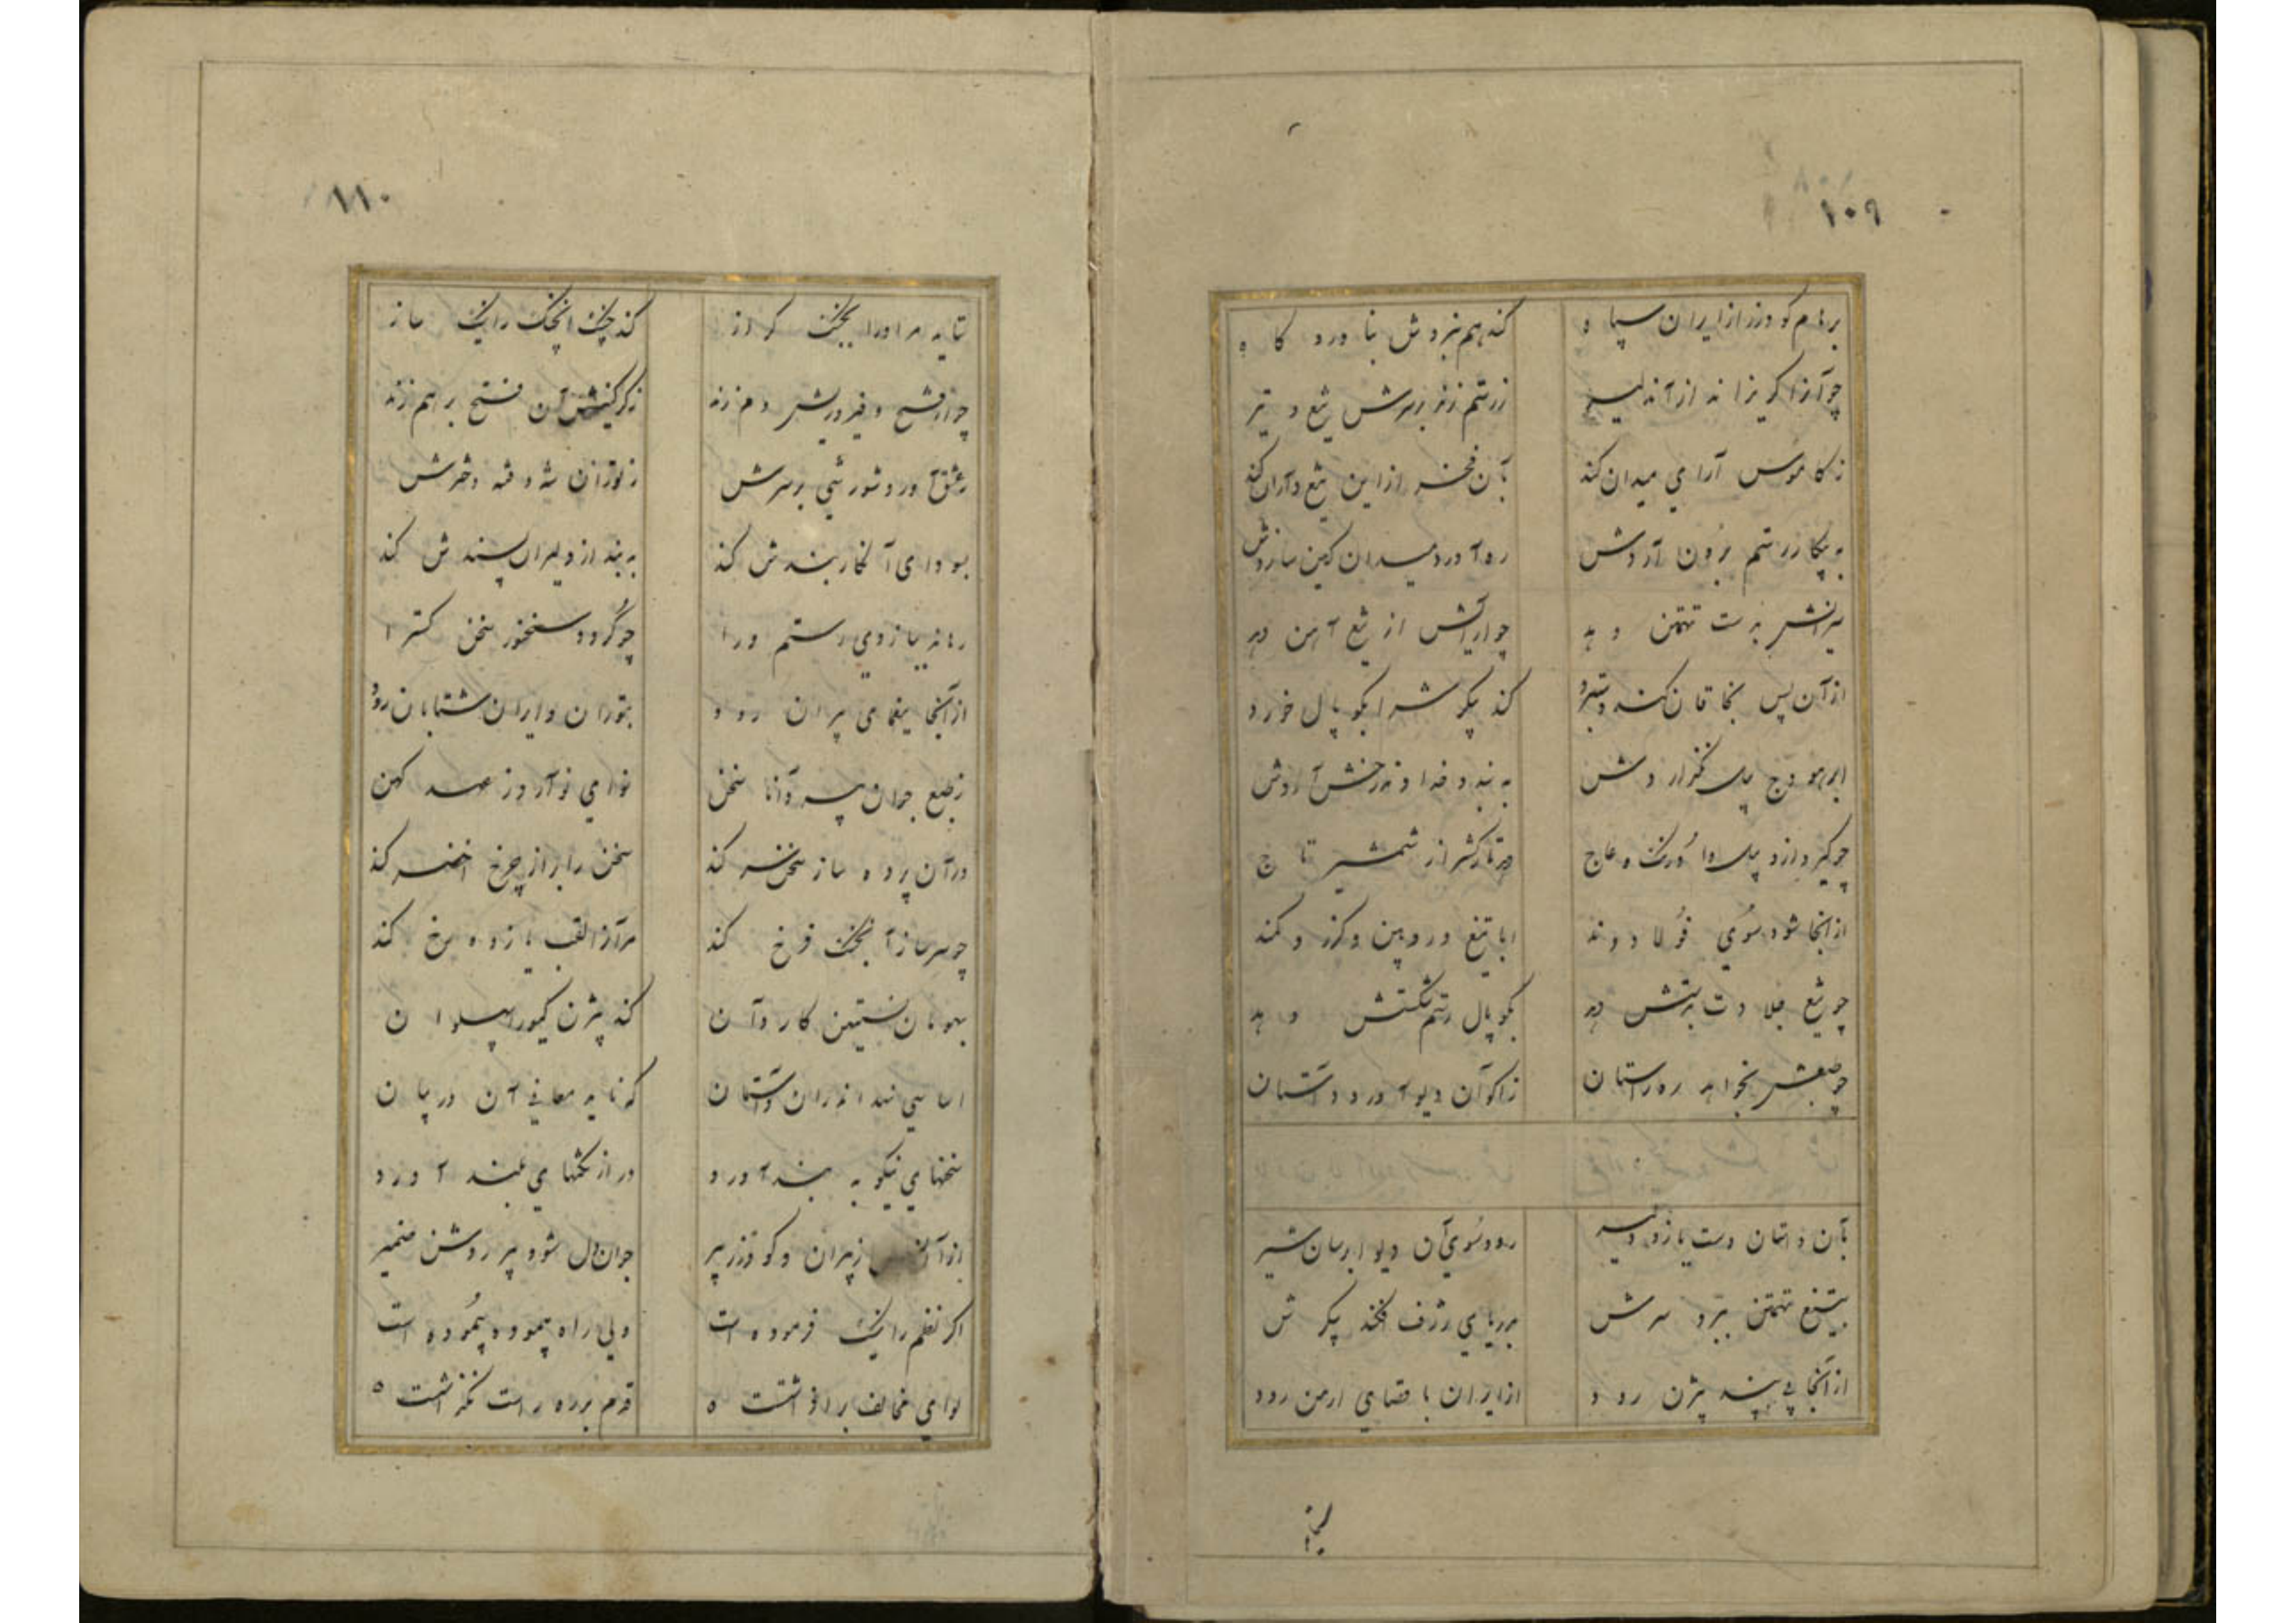 ۱۰۹
برهام گودرز از ایران سپاه کند هم نبردش بناوردگاه
چو آنرا گریزاند از آن دلیر ز رستم زند بر سرش تیغ و تیر
ز کاموس آرای میدان کند بآن فخر از این تیغ
به پیکار رستم برون آردش ره آورد میدان کین سازدش
بدست تهمتن دهد چو آرایش از تیغ آهن دهد
از آن پس بخاقان کند کند پیکرش را بکوپال خورد
ابر هودج پیل نگذاردش به بند و
چو گیرد ازو پیل و اورنگ و عاج شمشیر تاج
از آنجا شود سوی فولادوند ابا تیغ و روپین و گرز و کمند
چو تیغ جلادت بدستش دهد بکوپال رستم شکستش دهد
چو طبعش بخواهد ره راستان ز اکوان دیو آورد داستان
بآن داستان دست یازد دلیر رود سوی آن دیو ابر سان شیر
بتیغ تهمتن ببرد سرش بدریای ژرف افکند پیکرش
از آنجا پی بند بیژن رود از ایران باقصای ارمن رود
۱۱۰
نماید مر او را بجنگ گراز کند جنگ آنجنگ را نیک ساز
چو از فتح و فیروزیش دم زند ز گرگینش آن فتح برهم زند
ز عشق آورد شورشی بر سرش ز توران شه و فتنه دخترش
بسودای آن کار بندش کند به بند از دلیران پسندش کند
رهاند ببازوی رستم ورا چو گردد سخنور سخن گسترا
از آنجا بیغمای پیران رود بتوران و ایران شتابان رود
ز طبع جوان پیر دانا سخن نوای نو آرد ز عهد کهن
در آن پرده ساز سخن سر کند سخن را بر از چرخ اخضر کند
چو سر ساز آن جنگ فرخ کند مر آنرا لقب یازده رخ کند
بهومان نستیهن کاردان کند بیژن گیو را پهلوان
اساسی نهد اندر آن داستان که ناید معانی آن در بیان
سخنهای نیکو به بند آورد در از نکتهای بلند آورد
از آن پس ز پیران و گودرز پیر جوان دل شود پیر روشن ضمیر
اگر نظم را نیک فرموده است ولی راه پیموده پیموده است
لوای مخالف بر افراشته قدم بر ره راست نگذاشته